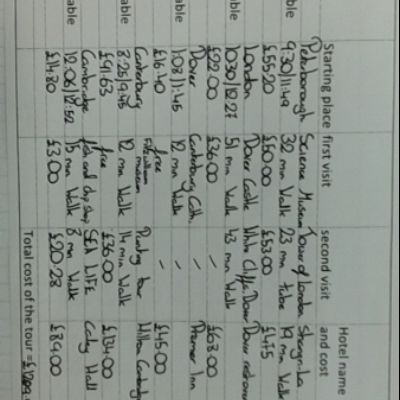 Hotel name
Starting place first visit second visit and cost
Peterborough Science Museum Tower of London Shangri-La
able 9:30/11:49 32 min Walk 23 min tube 19 min Walk
£55.20 £50.00 £53.00 £475
London Dover Castle White Cliffs Dover Dover
able 10:30/12:27 51 min Walk 43 min Walk
£22.00 £36.00 - £63.00
Dover Canterbury Cath. - Premier Inn
able 1:08/1:45 12 min Walk -
£16.40 free - £45.00
Canterbury Fitzwilliam museum Punting tour Hilton
able 8:25/9:45 12 min Walk 14 min Walk
£91.63 free £36.00 £134.00
Cambridge fish and chip shop SEA LIFE Caley Hall
able 12:06/12:52 15 min Walk 8 min Walk
£14.80 £3.00 £20.28 £84.00
Total cost of the tour =